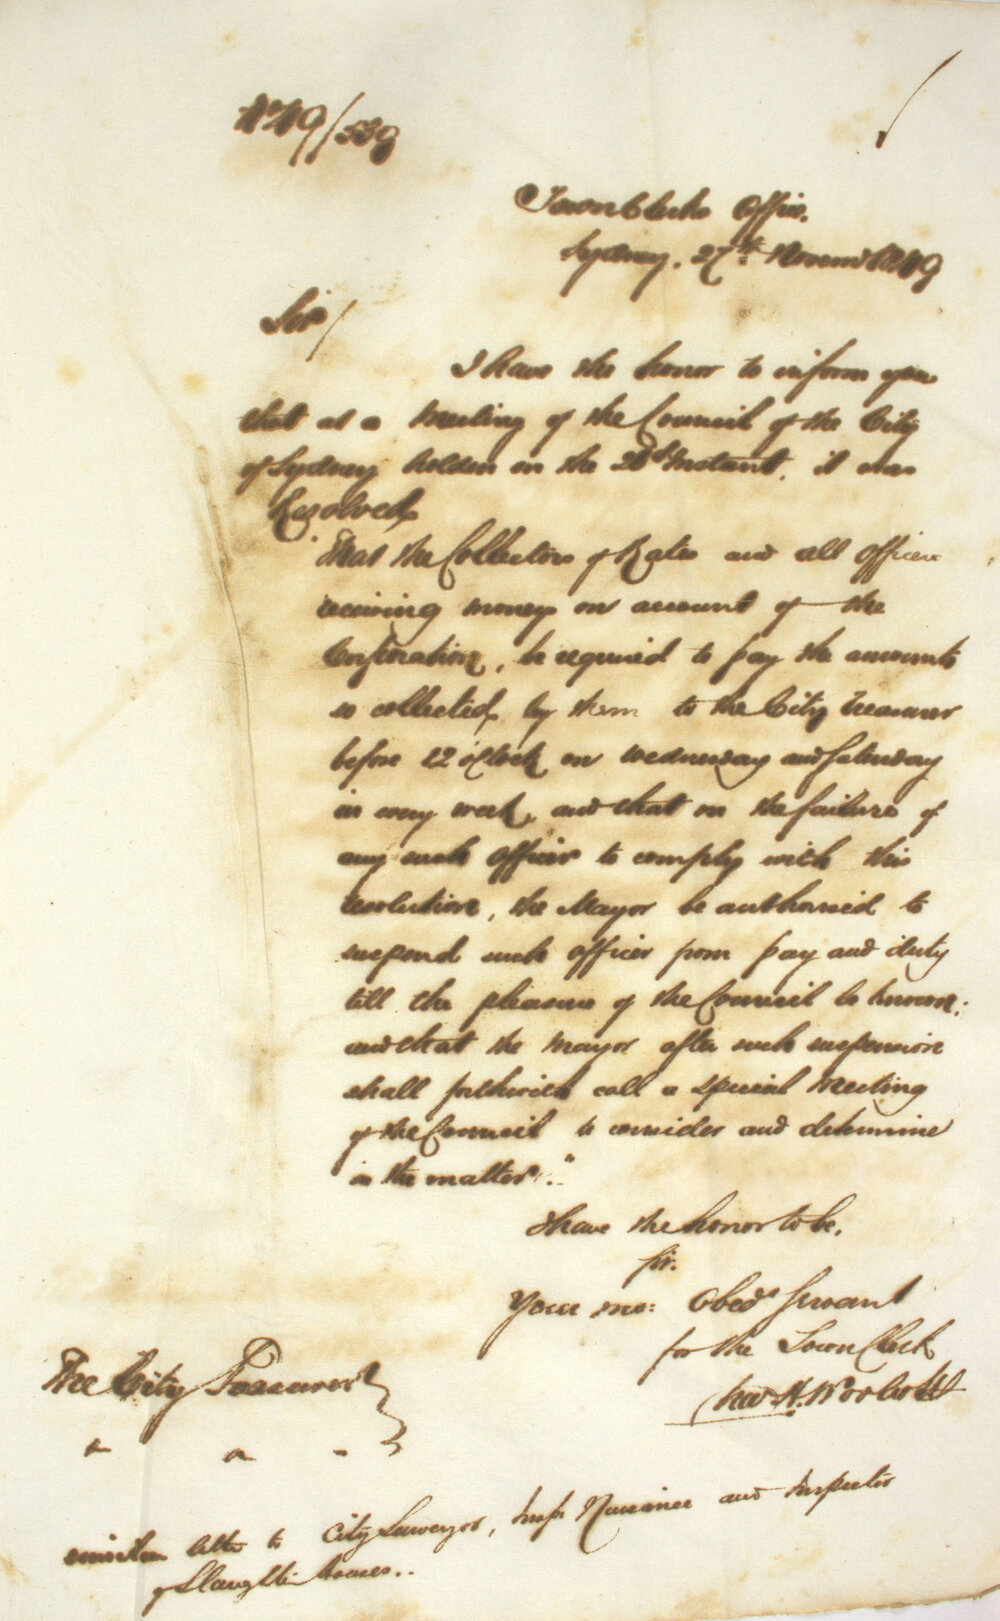 No 49/539
Town Clerks Office.
Sydney. 27th November 1849
Sir/
I have the honor to inform you
that at a Meeting of the Council of the City
of Sydney holden on the 26th Instant, it was
Resolved
"That the Collectors of Rates and all officers
receiving money on account of the
Corporation, be required to pay the amounts
so collected, by them to the City Treasurer
before 12 o'Clock on Wednesday and Saturday
in every week, and that on the failure of
any such officer to comply with this
resolution, the Mayor be authorized to
suspend such officer from pay and duty
till the pleasure of the Council be known:
and that the Mayor after such suspension
shall forthwith call a special Meeting
of the Council to consider and determine
in the matter."
I have the honor to be,
Sir.
Your mo: Obedt Servant
for the Town Clerk
Chas H. Woolcott
The City Treasurer
" " "
similar letter to City Surveyor, Insp. Nuisance and Inspector
of Slaughter houses..